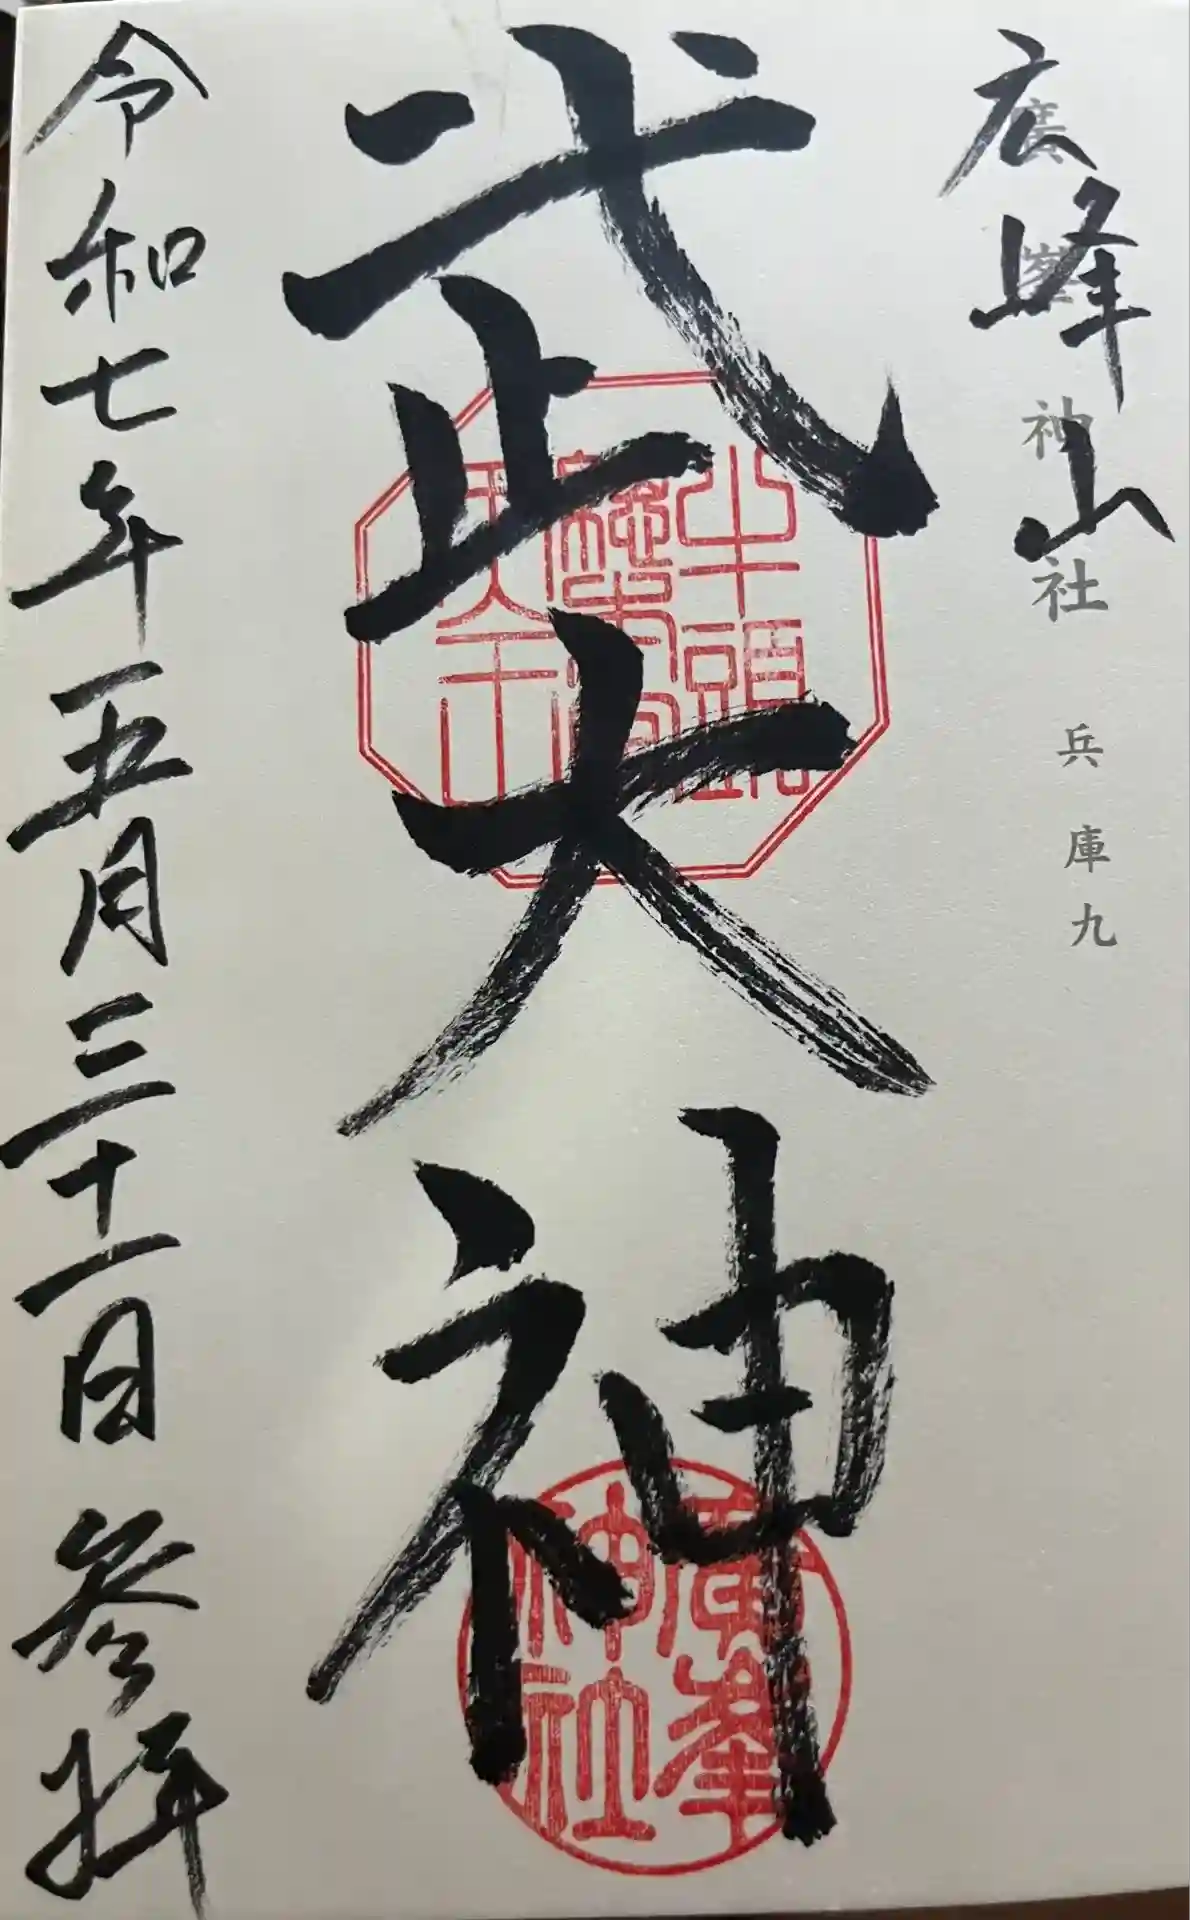 広峰山
廣峯神社 兵庫九
武大神
牛頭
天王
廣峯
神社
令和七年五月三十一日 参拝